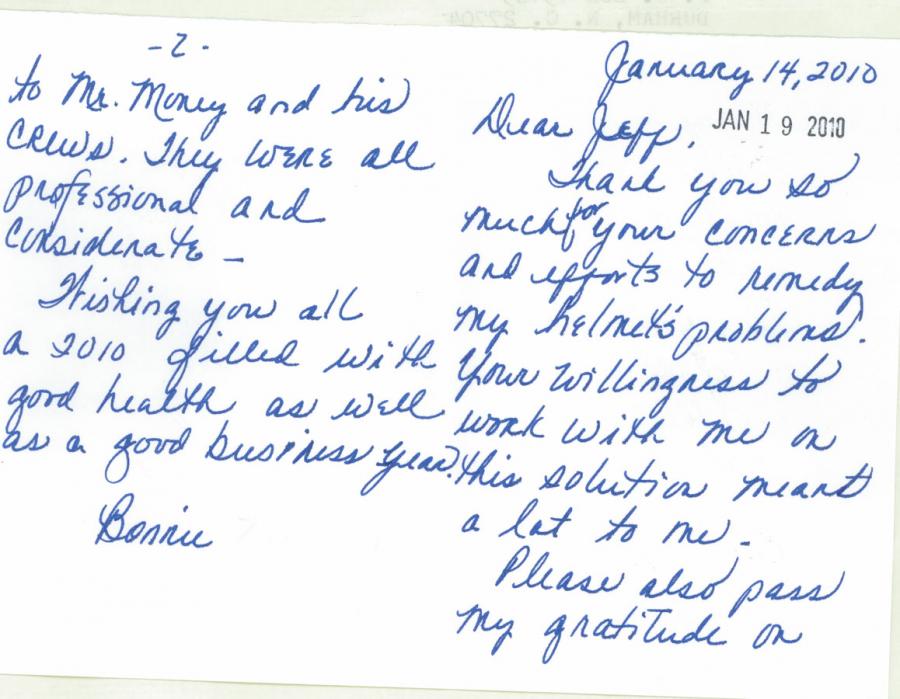 DURHAM, N. C. 27704
January 14, 2010
Dear Jeff,
JAN 19 2010
Thank you so
much for your concerns
and efforts to remedy
my helmet's problems.
Your willingness to
work with me on
this solution meant
a lot to me.
Please also pass
my gratitude on
-2-
to Mr. Money and his
crews. They were all
professional and
considerate -
Wishing you all
a 2010 filled with
good health as well
as a good business year.
Bonnie